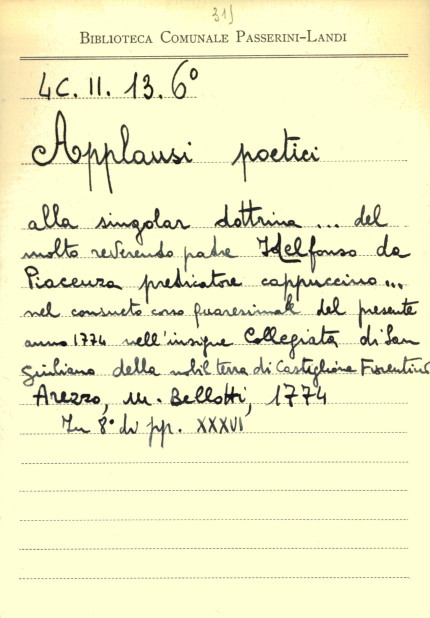 315
BIBLIOTECA COMUNALE PASSERINI-LANDI
4C. II. 13. 6°
Applausi poetici
alla singolar dottrina ... del
molto reverendo padre Idelfonso da
Piacenza predicatore cappuccino ...
nel consueto corso quaresimale del presente
anno 1774 nell'insigne Collegiata di San
Giuliano della nobil terra di Castiglione Fiorentino
Arezzo, M. Bellotti, 1774
In 8° di pp. XXXVI